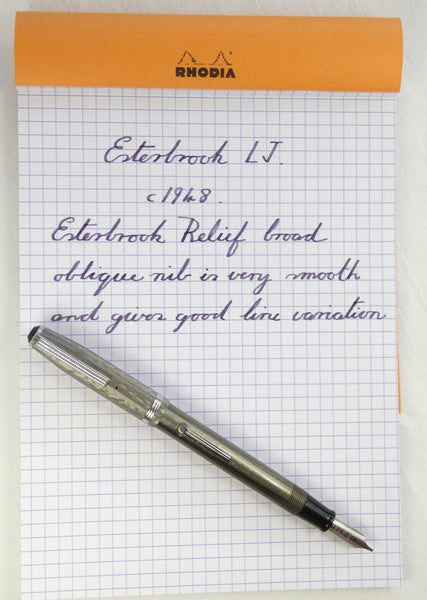 RHODIA
Esterbrook LJ.
c1948.
Esterbrook Relief broad
oblique nib is very smooth
and gives good line variation